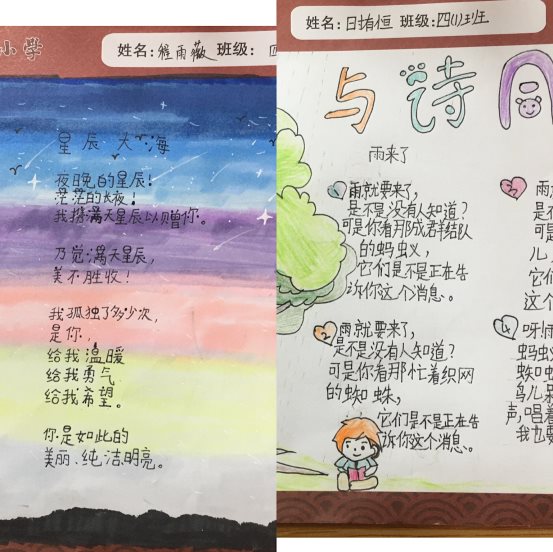 小学
姓名:程雨薇 班级: 四
星辰大海
夜晚的星辰!
茫茫的长夜!
我携满天星辰以赠你。
乃觉满天星辰,
美不胜收!
我孤独了多少次,
是你,
给我温暖
给我勇气
给我希望。
你是如此的
美丽、纯洁、明亮。
姓名:日堉恒 班级:四(1)班
与诗同
雨来了
1 雨就要来了,
是不是没有人知道?
可是你看那成群结队
的蚂蚁,
它们是不是正在告
诉你这个消息。
2 雨就要来了,
是不是没有人知道?
可是你看那忙着织网
的蜘蛛,
它们是不是正在告
诉你这个消息。
3 雨
是不
可是
儿,
它们
这个
4 呀!雨
蚂蚁
蜘蛛
鸟儿
声,唱着
我也要